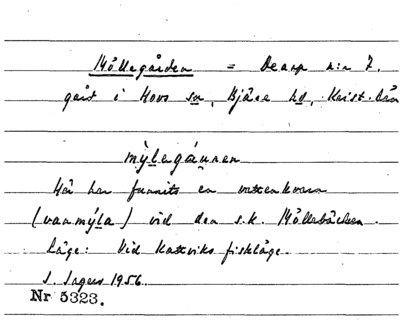 Möllegården = Dearp n:r 7.
gård i Hovs sn, Bjäre hd, Krist. län
mýlegáuren
Här har funnits en vattenkvarn
(vanmýla) vid den s.k. Möllebäcken.
Läge: Vid Kattviks fiskläge.
I. Ingers 1956.
Nr 5323.